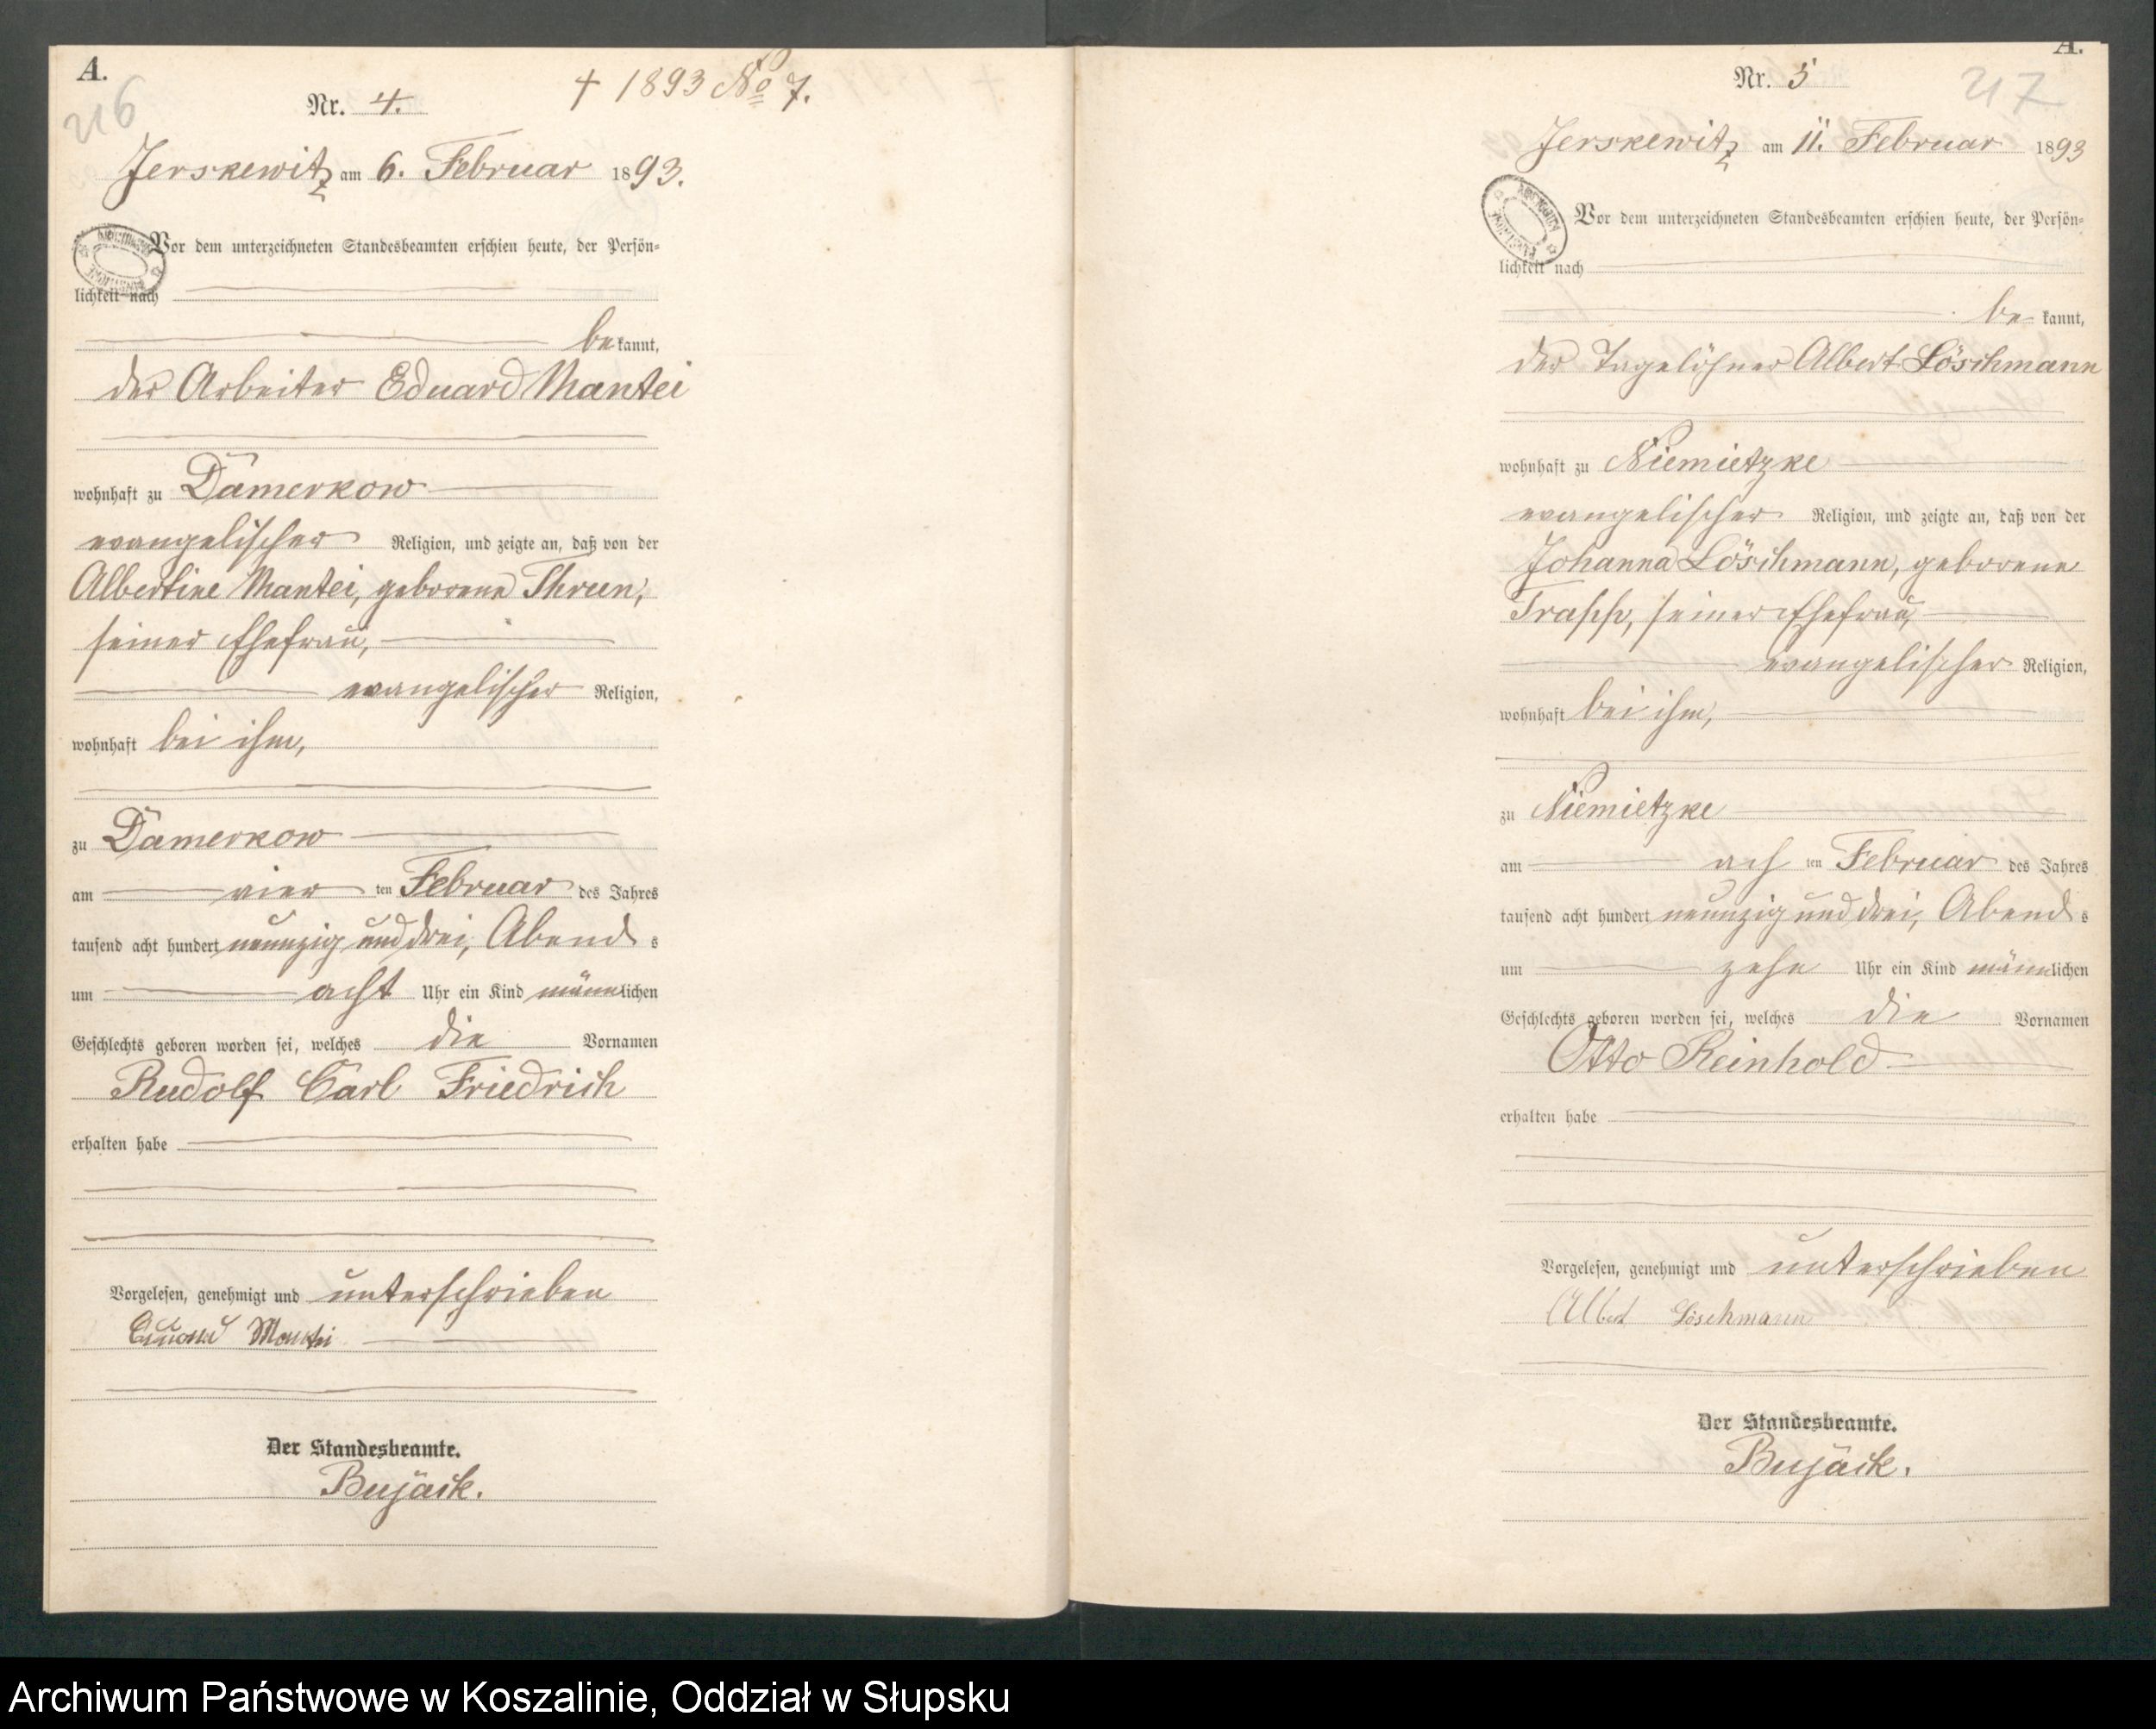 A.
216
Nr. 4.
† 1893 No 7.
Jerskewitz am 6. Februar 1893.
Vor dem unterzeichneten Standesbeamten erschien heute, der Persön=
lichkeit nach
be kannt,
der Arbeiter Eduard Mantei
wohnhaft zu Damerkow
evangelischer Religion, und zeigte an, daß von der
Albertine Mantei, geborene Thrun,
seiner Ehefrau,
evangelischer Religion,
wohnhaft bei ihm,
zu Damerkow
am vier ten Februar des Jahres
tausend acht hundert neunzig und drei, Abend s
um acht Uhr ein Kind männlichen
Geschlechts geboren worden sei, welches die Vornamen
Rudolf Carl Friedrich
erhalten habe
Vorgelesen, genehmigt und unterschrieben
Eduard Mantei
Der Standesbeamte.
Bujack.
A.
217
Nr. 5
Jerskewitz am 11. Februar 1893
Vor dem unterzeichneten Standesbeamten erschien heute, der Persön=
lichkeit nach
be- kannt,
der Tagelöhner Albert Löschmann
wohnhaft zu Niemietzke
evangelischer Religion, und zeigte an, daß von der
Johanna Löschmann, geborene
Trapp, seiner Ehefrau,
evangelischer Religion,
wohnhaft bei ihm,
zu Niemietzke
am ach ten Februar des Jahres
tausend acht hundert neunzig und drei, Abend s
um zehn Uhr ein Kind männlichen
Geschlechts geboren worden sei, welches die Vornamen
Otto Reinhold
erhalten habe
Vorgelesen, genehmigt und unterschrieben
Albert Löschmann
Der Standesbeamte.
Bujack.
Archiwum Państwowe w Koszalinie, Oddział w Słupsku